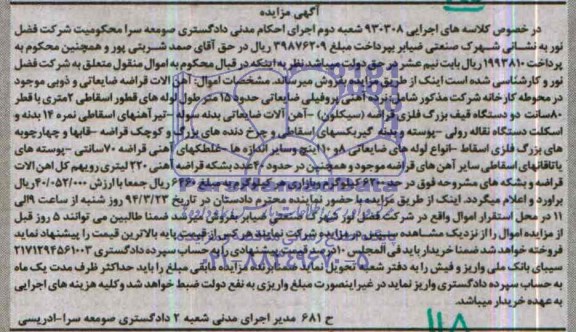 آگهی مزایده
در خصوص کلاسه های اجرایی ۹۳۰۳۰۸ شعبه دوم اجرای احکام مدنی دادگستری صومعه سرا محکومیت شرکت فضل
نور به نشانی شهرک صنعتی ضیابر بپرداخت مبلغ ۳۹۸۷۶۲۰۹ ریال در حق آقای صمد شربتی پور و همچنین محکوم به
پرداخت ۱۹۹۳۸۱۰ ریال بابت نیم عشر در حق دولت میباشد نظر به اینکه در قبال محکوم به اموال منقول متعلق به شرکت فضل
نور و کارشناسی شده است اینک از طریق مزایده بفروش میرسد. مشخصات اموال: آهن آلات قراضه ضایعاتی و ذوبی موجود
در محوطه کارخانه شرکت مذکور شامل: نرده آهنی پروفیلی ضایعاتی حدود ۱۵ متر طول لوله های قطور اسقاطی ۲ متری با قطر
۸۰ سانت دو دستگاه قیف بزرگ فلزی قراضه (سیکلون) -آهن آلات ضایعاتی بدنه سوله -تیرآهنهای اسقاطی نمره ۱۴ بدنه و
اسکلت دستگاه نقاله رولی -پوسته و بدنه گیربکسهای اسقاطی و چرخ دنده های بزرگ و کوچک قراضه -قابها و چهارچوبه
های بزرگ فلزی اسقاط -انواع لوله های ضایعاتی ۸ و ۱۰ اینچ وسایر اندازه ها -غلطکهای آهنی قراضه ۷۰ سانتی -پوسته های
یاتاقانهای اسقاطی سایر آهن های قراضه موجود و همچنین در حدود ۴۰ عدد بشکه قراضه آهنی ۲۲۰ لیتری رویهم کل آهن آلات
قراضه و بشکه های مشروحه فوق در حد ۶۲۰۰ کیلوگرم وبازاری هر کیلوگرم به مبلغ ۶۴۶۰ ریال جمعا با ارزش ۴۰/۰۵۲/۰۰۰ ریال
براورد و اعلام میگردد. اینک از طریق مزایده با حضور نماینده محترم دادستان در تاریخ ۹۴/۳/۲۳ روز شنبه از ساعت ۹ الی
۱۱ در محل استقرار اموال واقع در شرکت فضل نور شهرک صنعتی ضیابر بفروش میرسد ضمنا طالبین می توانند ۵ روز قبل
از مزایده اموال را از نزدیک مشاهده سپس در مزایده شرکت نمایند هر کس از قیمت پایه بالاترین قیمت را پیشنهاد نماید
فروخته خواهد شد ضمنا خریدار باید فی المجلس ۱۰ درصد قیمت پیشنهادی را به حساب سپرده دادگستری ۲۱۷۱۲۹۴۵۶۱۰۰۳
سیبای بانک ملی واریز و فیش را به دفتر شعبه تحویل نماید. برنده مزایده مابقی مبلغ را باید حداکثر ظرف مدت یک ماه
به حساب سپرده دادگستری واریز نماید در غیر اینصورت مبلغ واریزی به نفع دولت ضبط خواهد شد و کلیه هزینه های اجرایی
به عهده خریدار میباشد.
ح ۶۸۱ مدیر اجرای مدنی شعبه ۲ دادگستری صومعه سرا-ادریسی